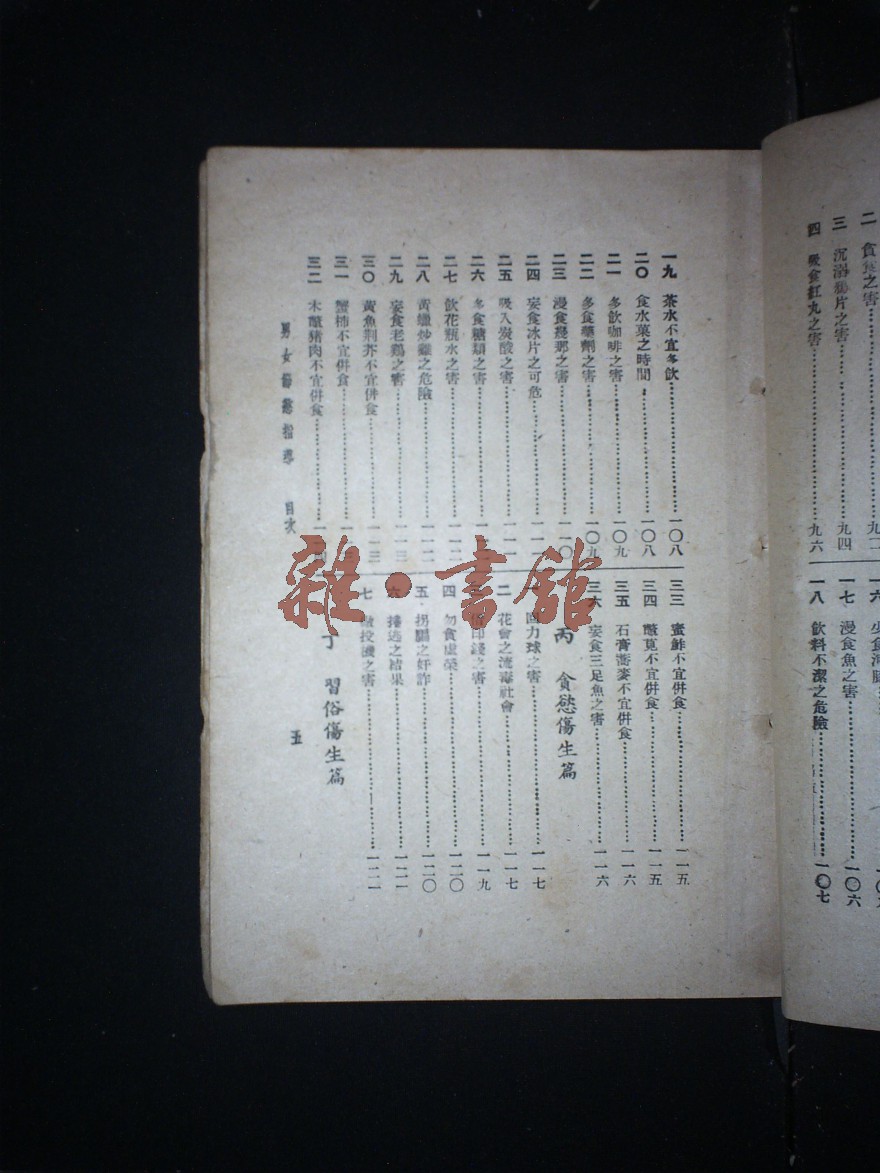 二 貪食之害……九二
三 沉溺鴉片之害……九四
四 吸食紅丸之害……九六
一七 漫食魚之害……一〇六
一八 飲料不潔之危險……一〇七
一九 茶水不宜多飲……一〇八
二〇 食水菓之時間……一〇八
二一 多飲咖啡之害……一〇九
二二 多食藥劑之害……一〇九
二三 漫食之害……一一〇
二四 妄食冰片之可危……一一
二五 吸入炭酸之害……一一
二六 多食糖類之害……一一
二七 飲花瓶水之害……一一二
二八 黃蠟炒雞之危險……一一二
二九 妄食老鷄之害……一一三
三〇 黃魚荆芥不宜併食……一一三
三一 蟹柿不宜併食……一
三二 木猪肉不宜併食……一一
三三 蜜鮓不宜併食……一一五
三四 莧不宜併食……一一五
三五 石膏蕎麥不宜併食……一一六
三六 妄食三足魚之害……一一六
丙 貪慾傷生篇
回力球之害……一一七
二 花會之流毒社會……一一七
印錢之害……一一九
四 勿貪虛榮……一二〇
五 拐騙之奸詐……一二〇
六 捲逃之結果……一二一
七 投機之害……一二一
丁 習俗傷生篇
男女慾指導 目次
五
雜·書館